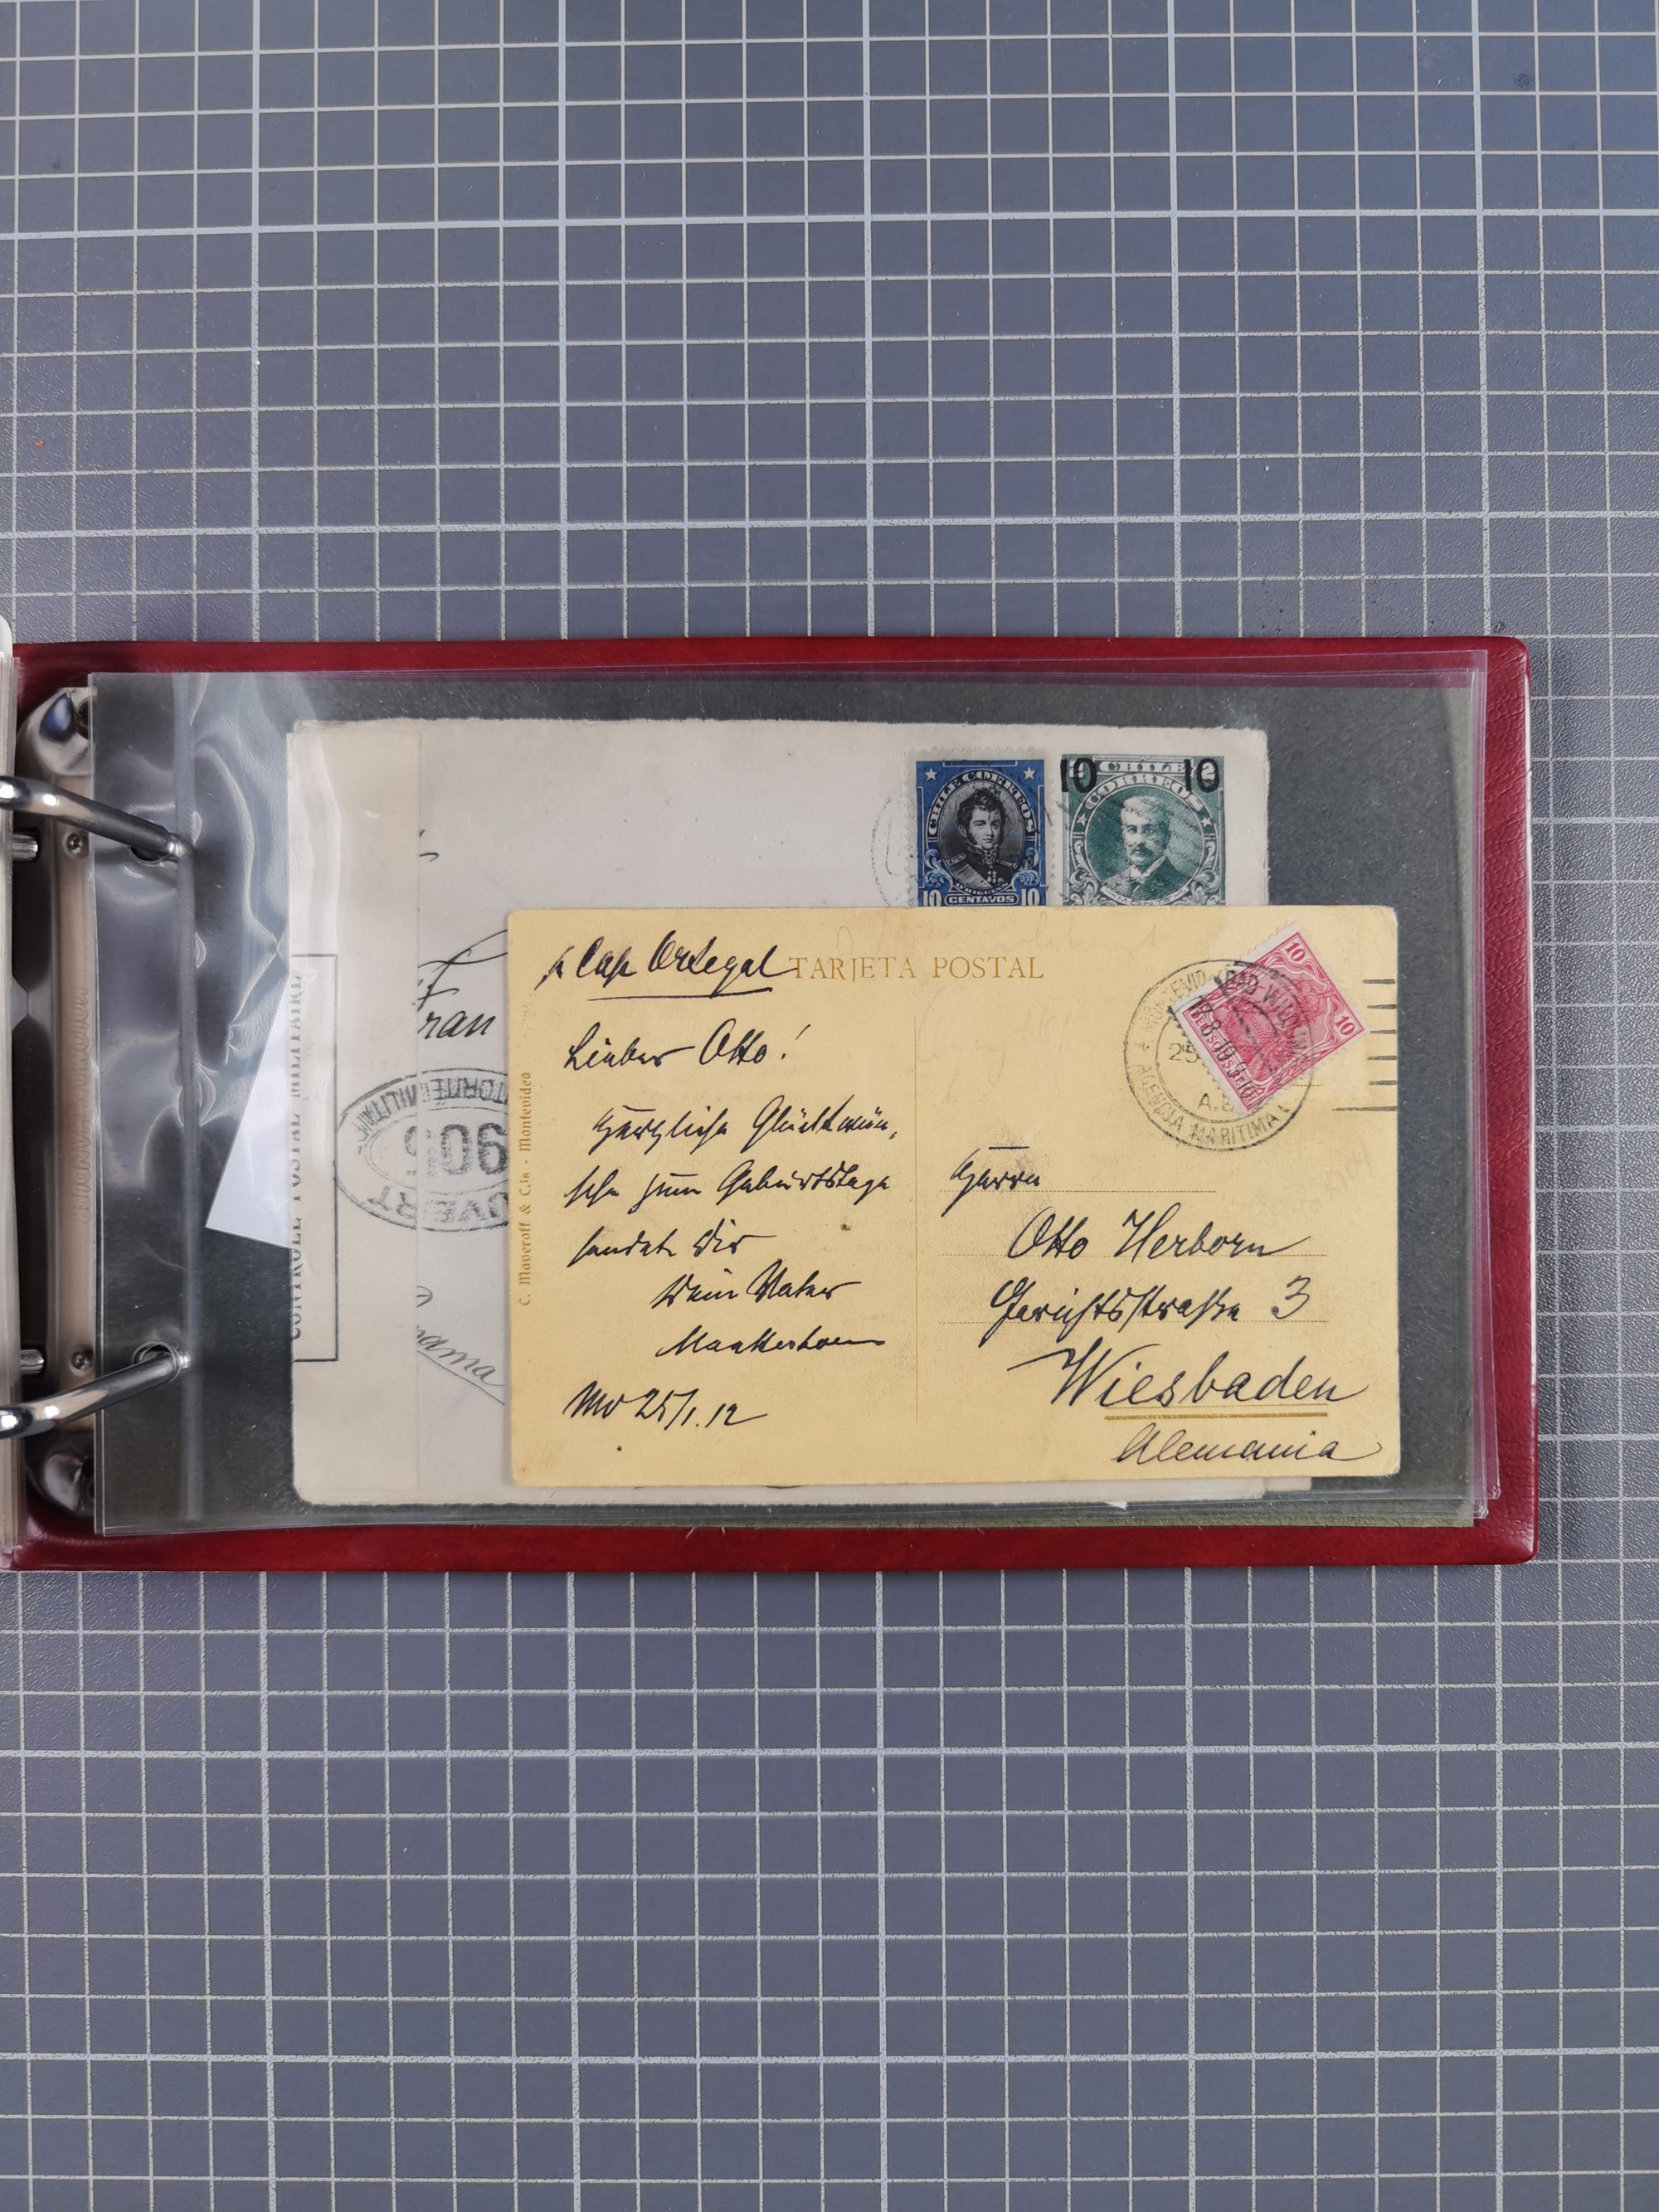 CHILE CORREOS
10 CENTAVOS 10
10 10
CHILE
CORREOS
CONTROLE POSTAL MILITAIRE
OUVERT
AUTORITÉ MILITAIRE
906
ran
ama
p Cap Ortegal
TARJETA POSTAL
C. Maveroff & C.ia - Montevideo
Lieber Otto!
Herzliche Glückwün-
sche zum Geburtstage
sendet Dir
Dein Vater
Mv 25/1.12
10 10
MONTEVIDEO
25
AGENCIA MARITIMA
Herrn
Otto Herborn
Gerichtsstraße 3
Wiesbaden
Alemania